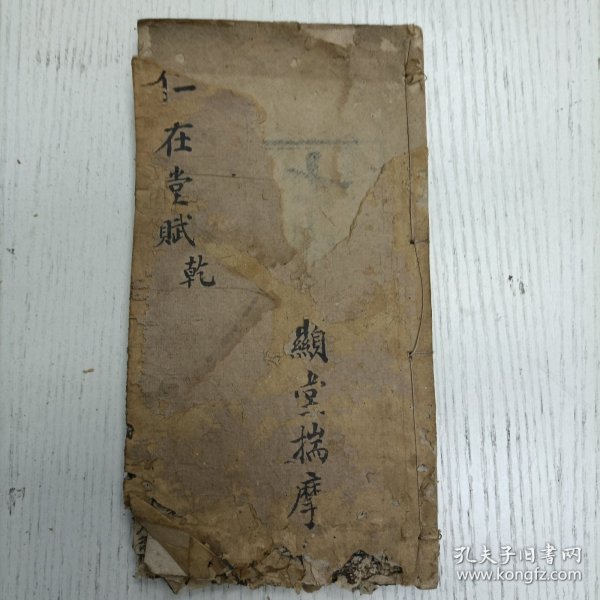 仁在堂賦乾
顯堂揣摩
孔夫子旧书网
www.kongfz.com